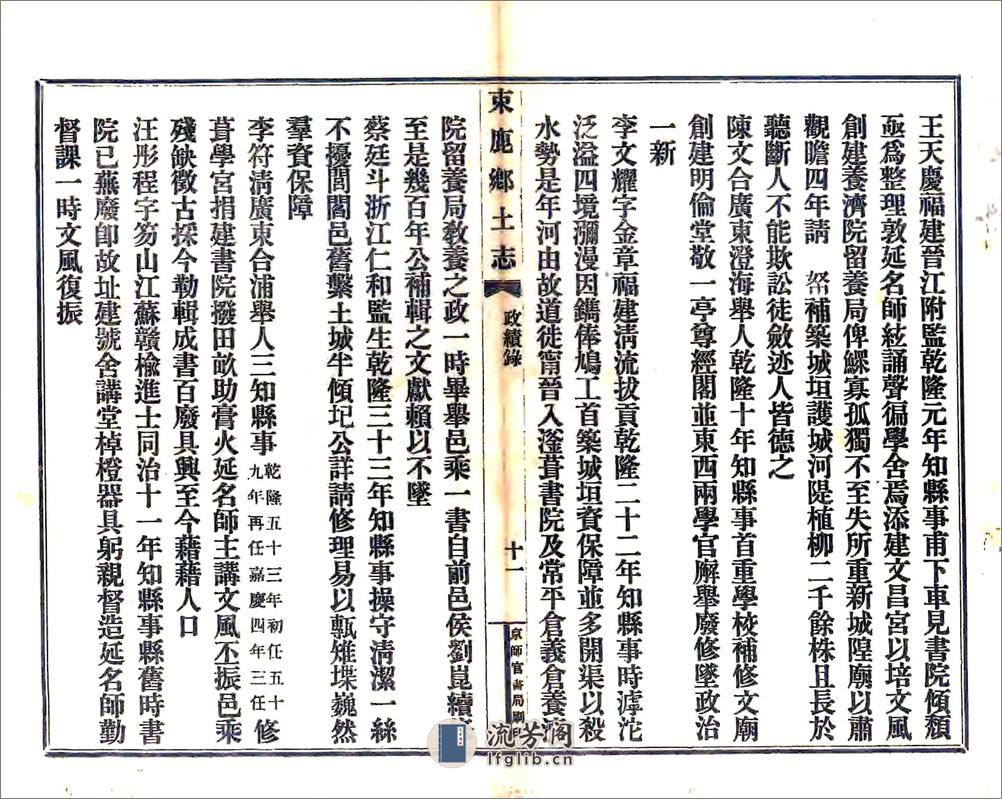 王天慶福建晉江附監乾隆元年知縣事甫下車見書院傾頹
亟爲整理敦延名師絃誦聲徧學舍焉添建文昌宮以培文風
創建養濟院留養局俾鰥寡孤獨不至失所重新城隍廟以肅
觀瞻四年請 帑補築城垣護城河隄植柳二千餘株且長於
聽斷人不能欺訟徒斂迹人皆德之
陳文合廣東澄海舉人乾隆十年知縣事首重學校補修文廟
創建明倫堂敬一亭尊經閣並東西兩學官廨舉廢修墜政治
一新
李文耀字金章福建淸流拔貢乾隆二十二年知縣事時滹沱
泛溢四境瀰漫因鐫俸鳩工首築城垣資保障並多開渠以殺
水勢是年河由故道徙甯晉入滏葺書院及常平倉義倉養濟
束鹿鄉土志
政績錄
十一
京師官書局刷印
院留養局敎養之政一時畢舉邑乘一書自前邑侯劉崑續
至是幾百年公補輯之文獻賴以不墜
蔡廷斗浙江仁和監生乾隆三十三年知縣事操守淸潔一絲
不擾閭閻邑舊繫土城半傾圮公詳請修理易以甎雉堞巍然
羣資保障
李符淸廣東合浦舉人三知縣事乾隆五十三年初任五十九年再任嘉慶四年三任修
葺學宮捐建書院撥田畝助膏火延名師主講文風丕振邑乘
殘缺徵古採今勒輯成書百廢具興至今藉藉人口
汪彤程字笏山江蘇贛楡進士同治十一年知縣事縣舊時書
院已蕪廢卽故址建號舍講堂棹櫈器具躬親督造延名師勤
督課一時文風復振
流芳阁
lfglib.cn